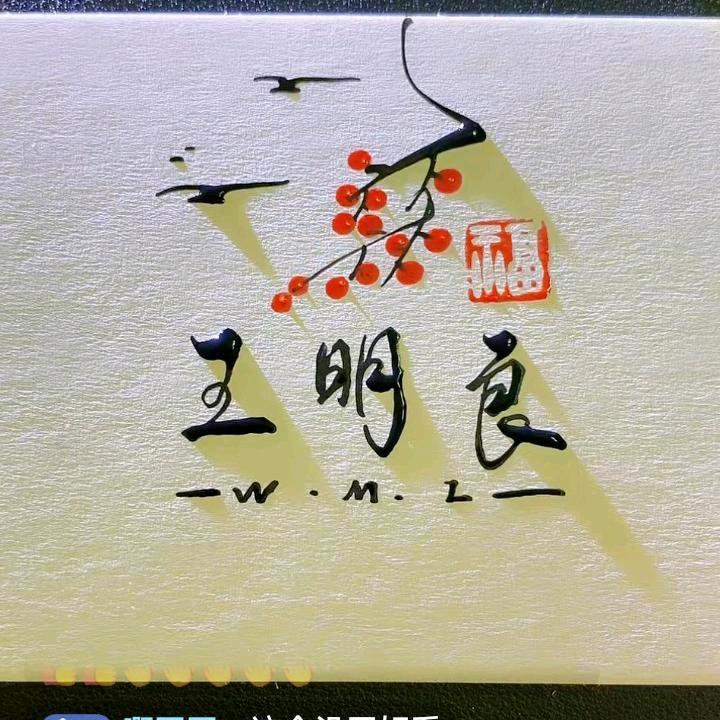 福
王明良
—W.M.L—